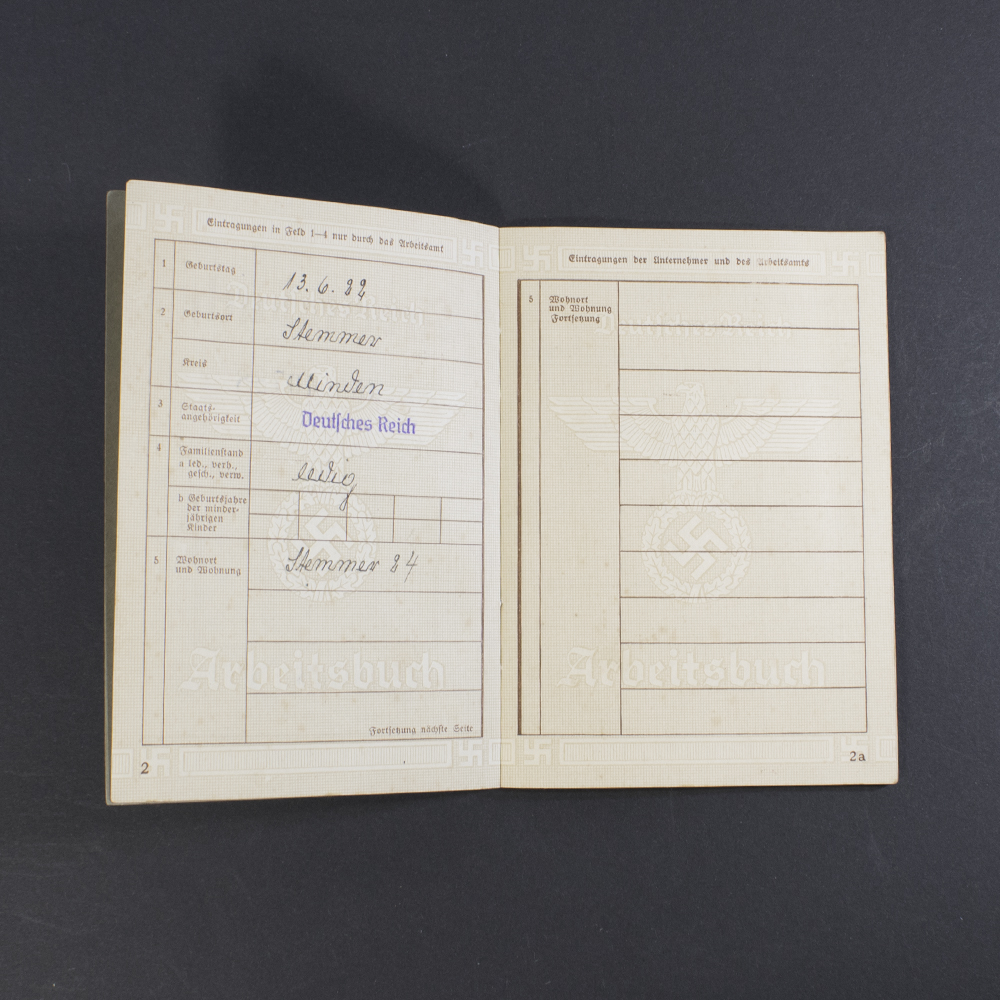 Eintragungen in Feld 1—4 nur durch das Arbeitsamt
1 Geburtstag 13. 6. 22
2 Geburtsort Stemmer
Kreis Minden
3 Staats-
angehörigkeit Deutsches Reich
4 Familienstand
a led., verh.,
gesch., verw. ledig
b Geburtsjahre
der minder-
jährigen
Kinder
5 Wohnort
und Wohnung Stemmer 84
Fortsetzung nächste Seite
Deutsches Reich
Arbeitsbuch
2
Eintragungen der Unternehmer und des Arbeitsamts
5 Wohnort
und Wohnung
Fortsetzung
Deutsches Reich
Arbeitsbuch
2a